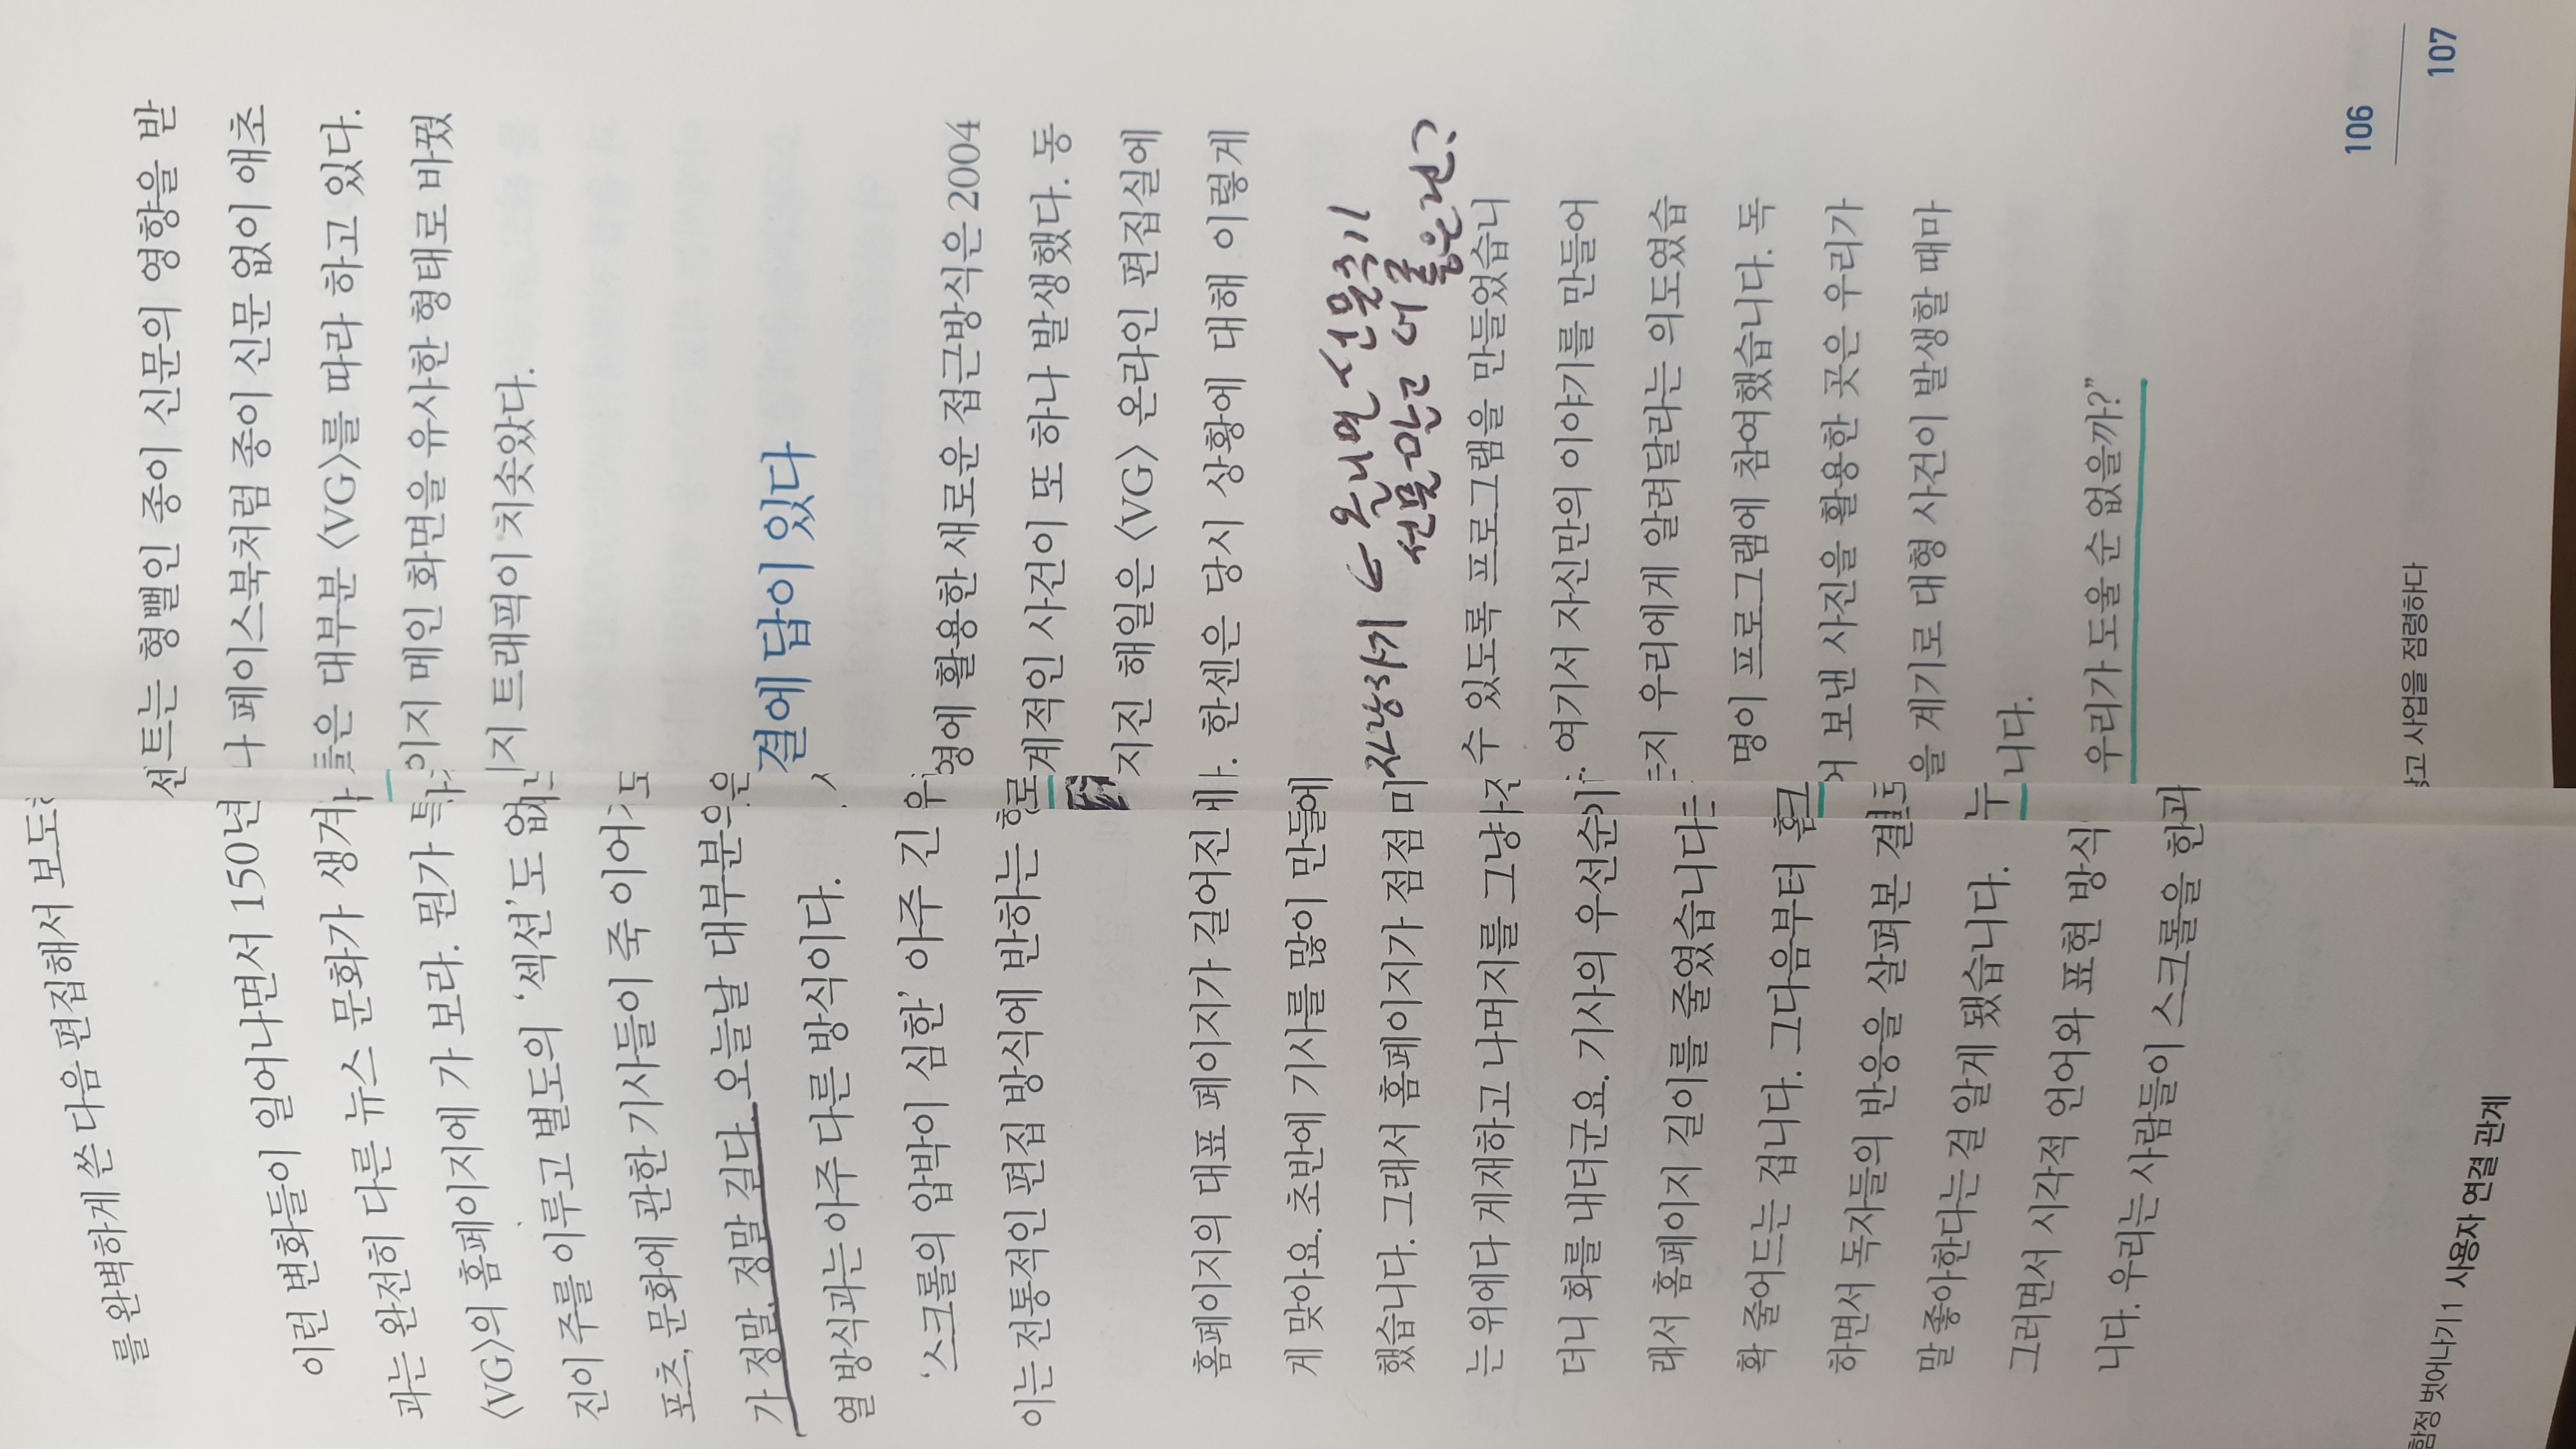 를 완벽하게 쓴 다음 편집해서 보도
이런 변화들이 일어나면서 150년
과는 완전히 다른 뉴스 문화가 생겨
〈VG〉의 홈페이지에 가 보라. 뭔가
진이 주를 이루고 별도의 ‘섹션’도
포츠, 문화에 관한 기사들이 죽 이어
가 정말, 정말 길다. 오늘날 대부분
열 방식과는 아주 다른 방식이다.
‘스크롤의 압박이 심한’ 아주 긴
이는 전통적인 편집 방식에 반하는
홈페이지의 대표 페이지가 길어진
게 맞아요. 초반에 기사를 많이 만들
했습니다. 그래서 홈페이지가 점점
는 위에다 게재하고 나머지를 그냥
더니 화를 내더군요. 기사의 우선순
래서 홈페이지 길이를 줄였습니다
확 줄어드는 겁니다. 그다음부터
하면서 독자들의 반응을 살펴본
말 좋아한다는 걸 알게 됐습니다.
그러면서 시각적 언어와 표현 방식
니다. 우리는 사람들이 스크롤을
함정 벗어나기 1 사용자 연결 관계
센트는 형뻘인 종이 신문의 영향을 받
나 페이스북처럼 종이 신문 없이 애초
들은 대부분 〈VG〉를 따라 하고 있다.
이지 메인 화면을 유사한 형태로 바꿨
지 트래픽이 치솟았다.
결에 답이 있다
영에 활용한 새로운 접근방식은 2004
계적인 사건이 또 하나 발생했다. 동
지진 해일은 〈VG〉 온라인 편집실에
한센은 당시 상황에 대해 이렇게
자랑하기 ← 왜냐면 신문주기
신문만고
수 있도록 프로그램을 만들었습니
여기서 자신만의 이야기를 만들어
지 우리에게 알려달라는 의도였습
명이 프로그램에 참여했습니다. 독
보낸 사진을 활용한 곳은 우리가
을 계기로 대형 사건이 발생할 때마
니다.
우리가 도울 순 없을까?”
고 사업을 점령하다
106
107